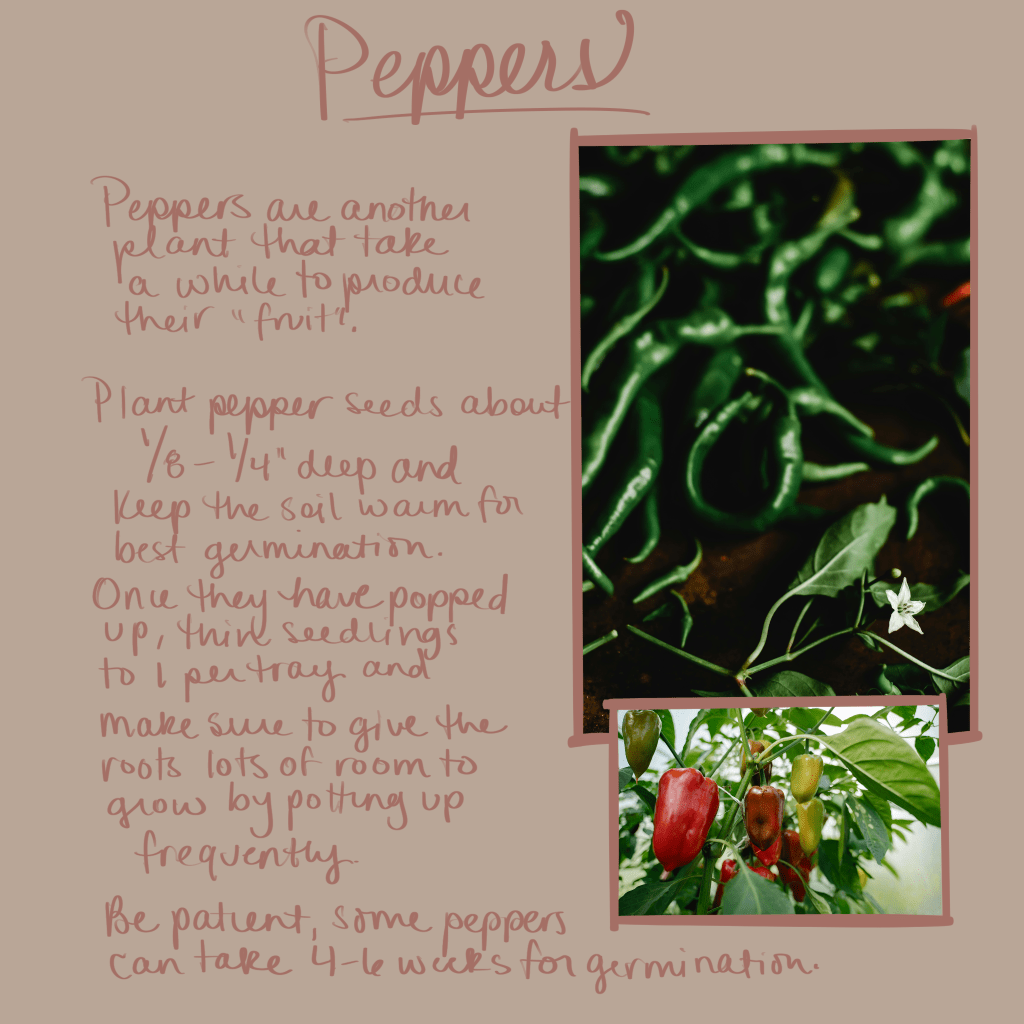 Peppers
Peppers are another
plant that take
a while to produce
their "fruit".
Plant pepper seeds about
1/8 - 1/4" deep and
keep the soil warm for
best germination.
Once they have popped
up, thin seedlings
to 1 per tray and
make sure to give the
roots lots of room to
grow by potting up
frequently.
Be patient, some peppers
can take 4-6 weeks for germination.